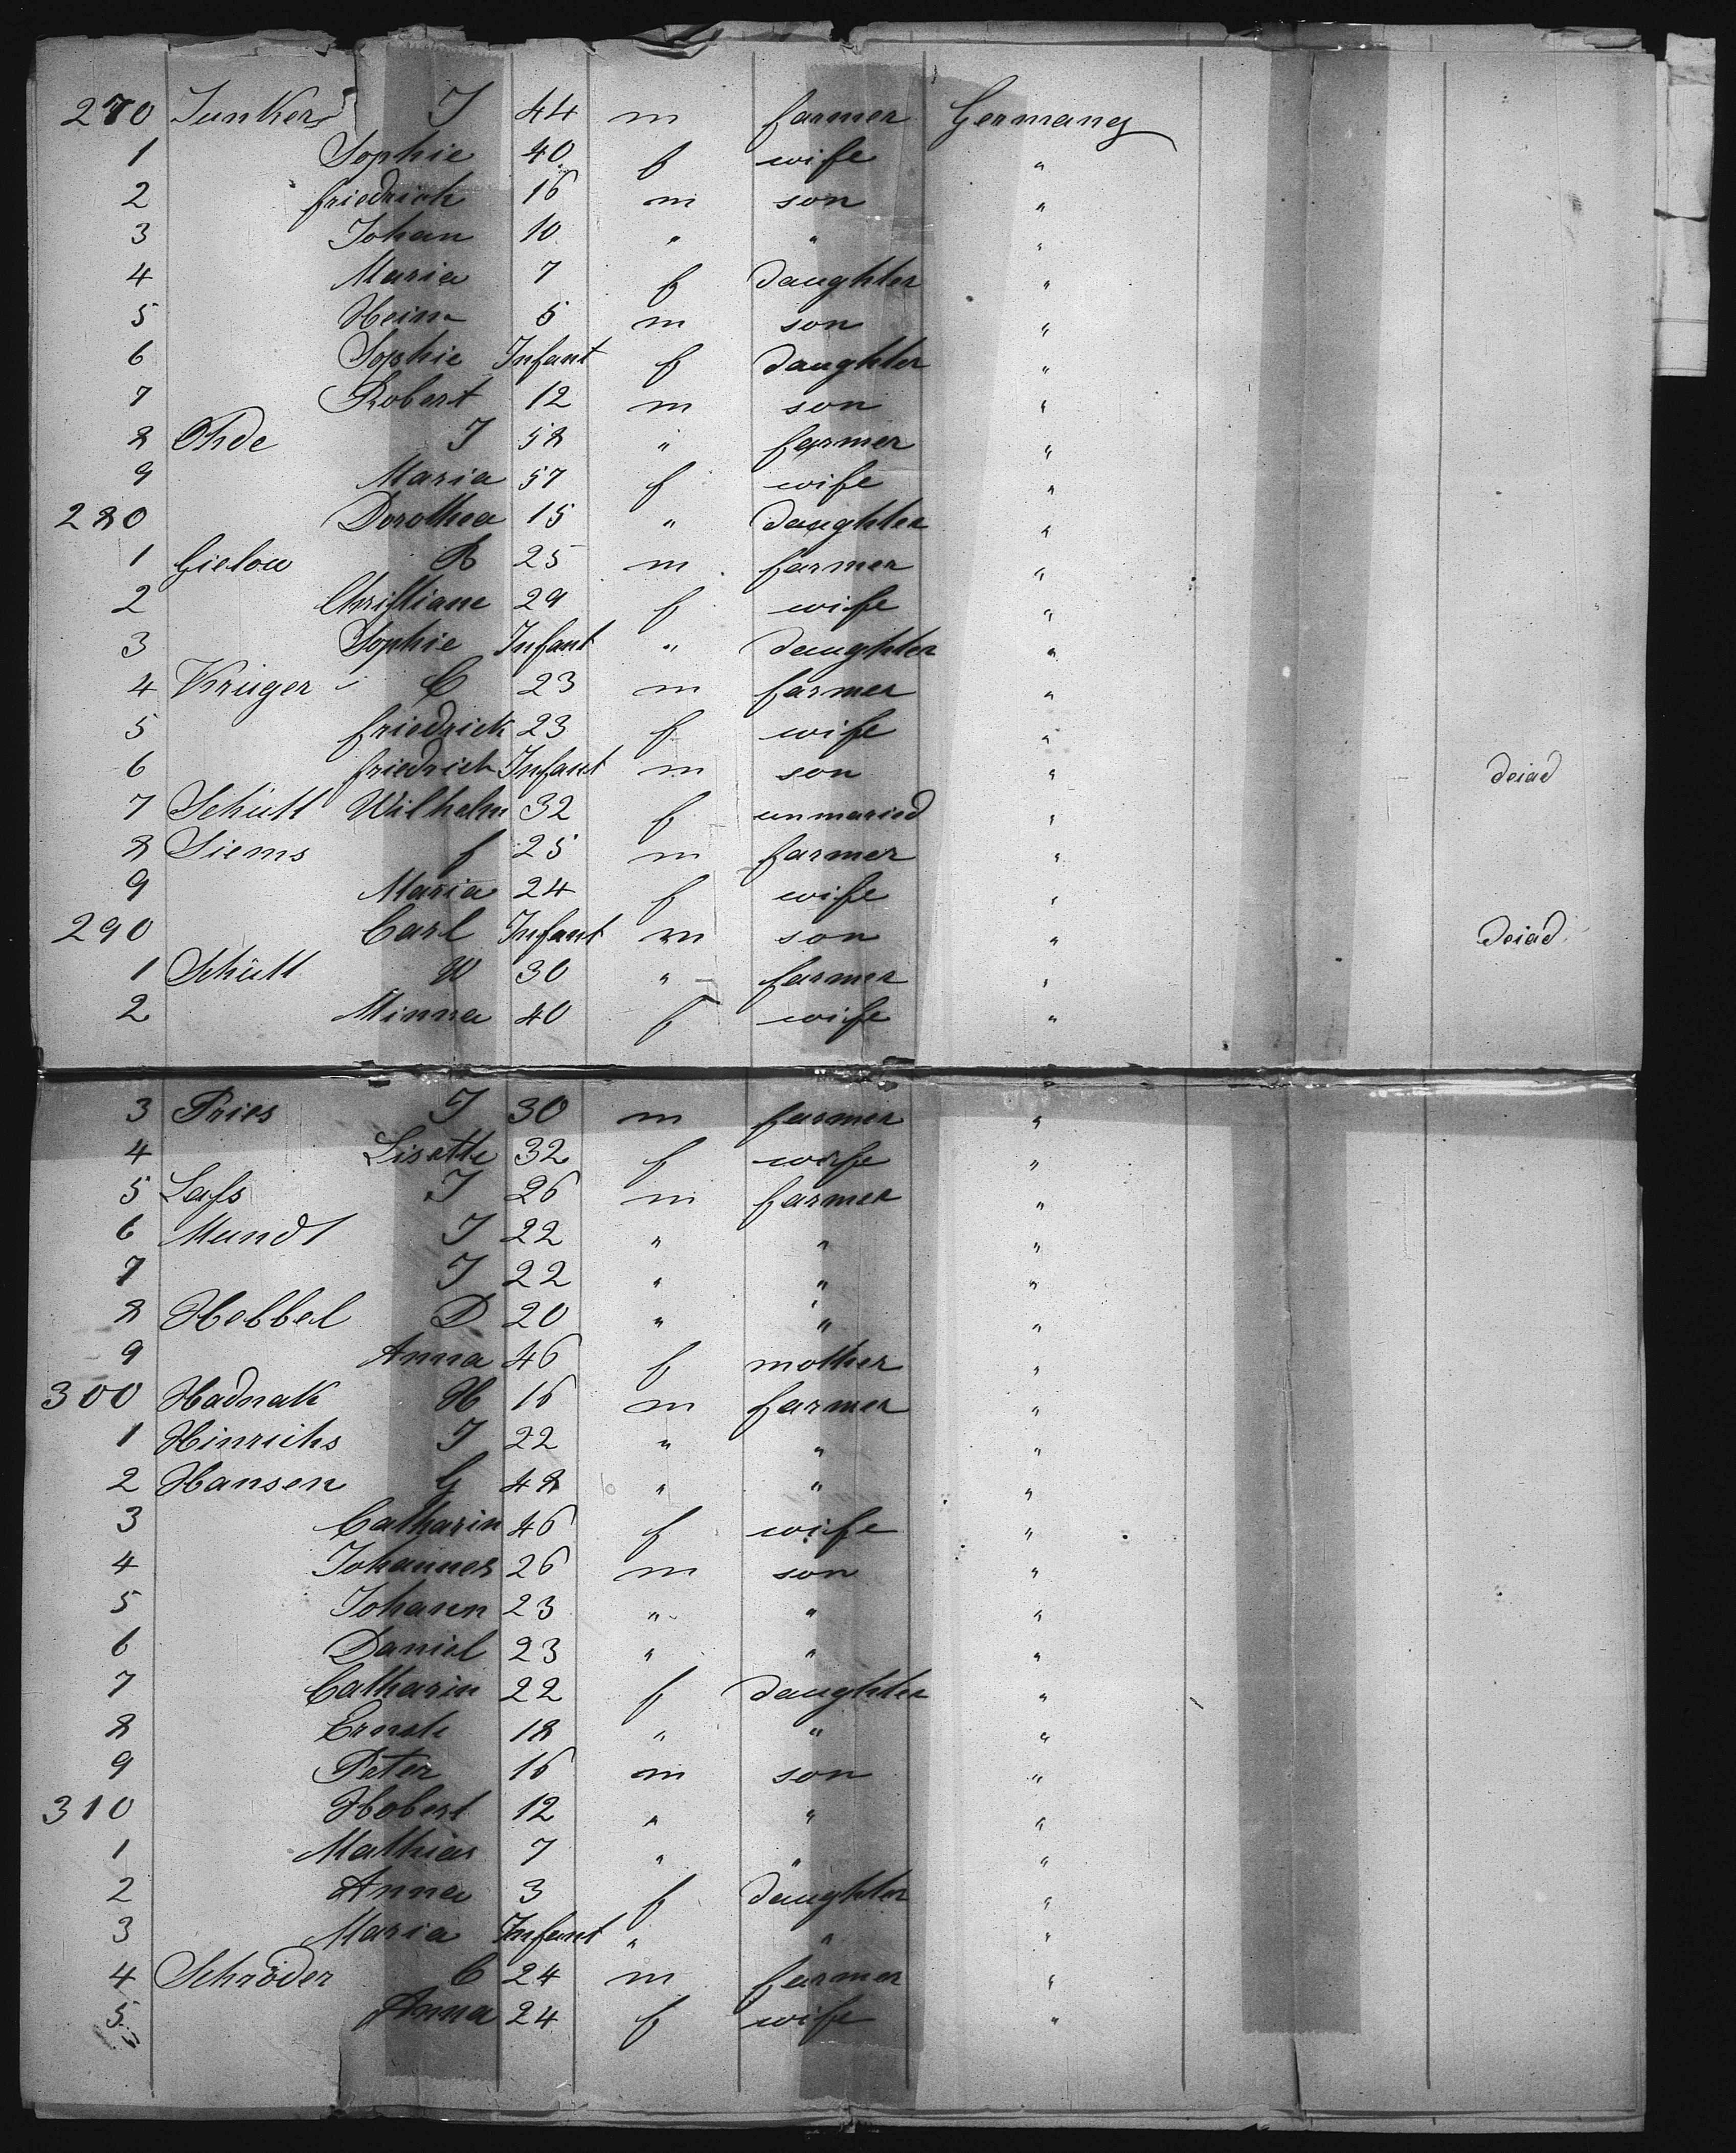 270 Junker J 44 m farmer Germany
1 Sophie 40 f wife "
2 friedrich 16 m son "
3 Johan 10 " " "
4 Maria 7 f daughter "
5 Hein 5 m son "
6 Sophie Infant f daughter "
7 Robert 12 m son "
8 Ohde J 58 " farmer "
9 Maria 57 f wife "
280 Dorothea 15 " daughter "
1 Gielow R 25 m farmer "
2 Christiane 29 f wife "
3 Sophie Infant " daughter "
4 Krüger C 23 m farmer "
5 friedrick 23 f wife "
6 friedrich Infant m son " deiad
7 Schütt Wilhelm 32 f unmaried "
8 Siems f 25 m farmer "
9 Maria 24 f wife "
290 Carl Infant m son " deiad
1 Schütt W 30 " farmer "
2 Minna 40 f wife "
3 Pries J 30 m farmer "
4 Lisette 32 f wife "
5 Lafs J 26 m farmer "
6 Mundt J 22 " " "
7 J 22 " " "
8 Hebbel D 20 " " "
9 Anna 46 f mother "
300 Hadnak H 16 m farmer "
1 Hinrichs J 22 " " "
2 Hansen G 48 " " "
3 Catharin 46 f wife "
4 Johannes 26 m son "
5 Johann 23 " " "
6 Daniel 23 " " "
7 Catharin 22 f daughter "
8 Ernste 18 " " "
9 Peter 16 m son "
310 Hobert 12 " " "
1 Mathias 7 " " "
2 Anna 3 f daughter "
3 Maria Infant " " "
4 Schröder C 24 m farmer "
5 Anna 24 f wife "